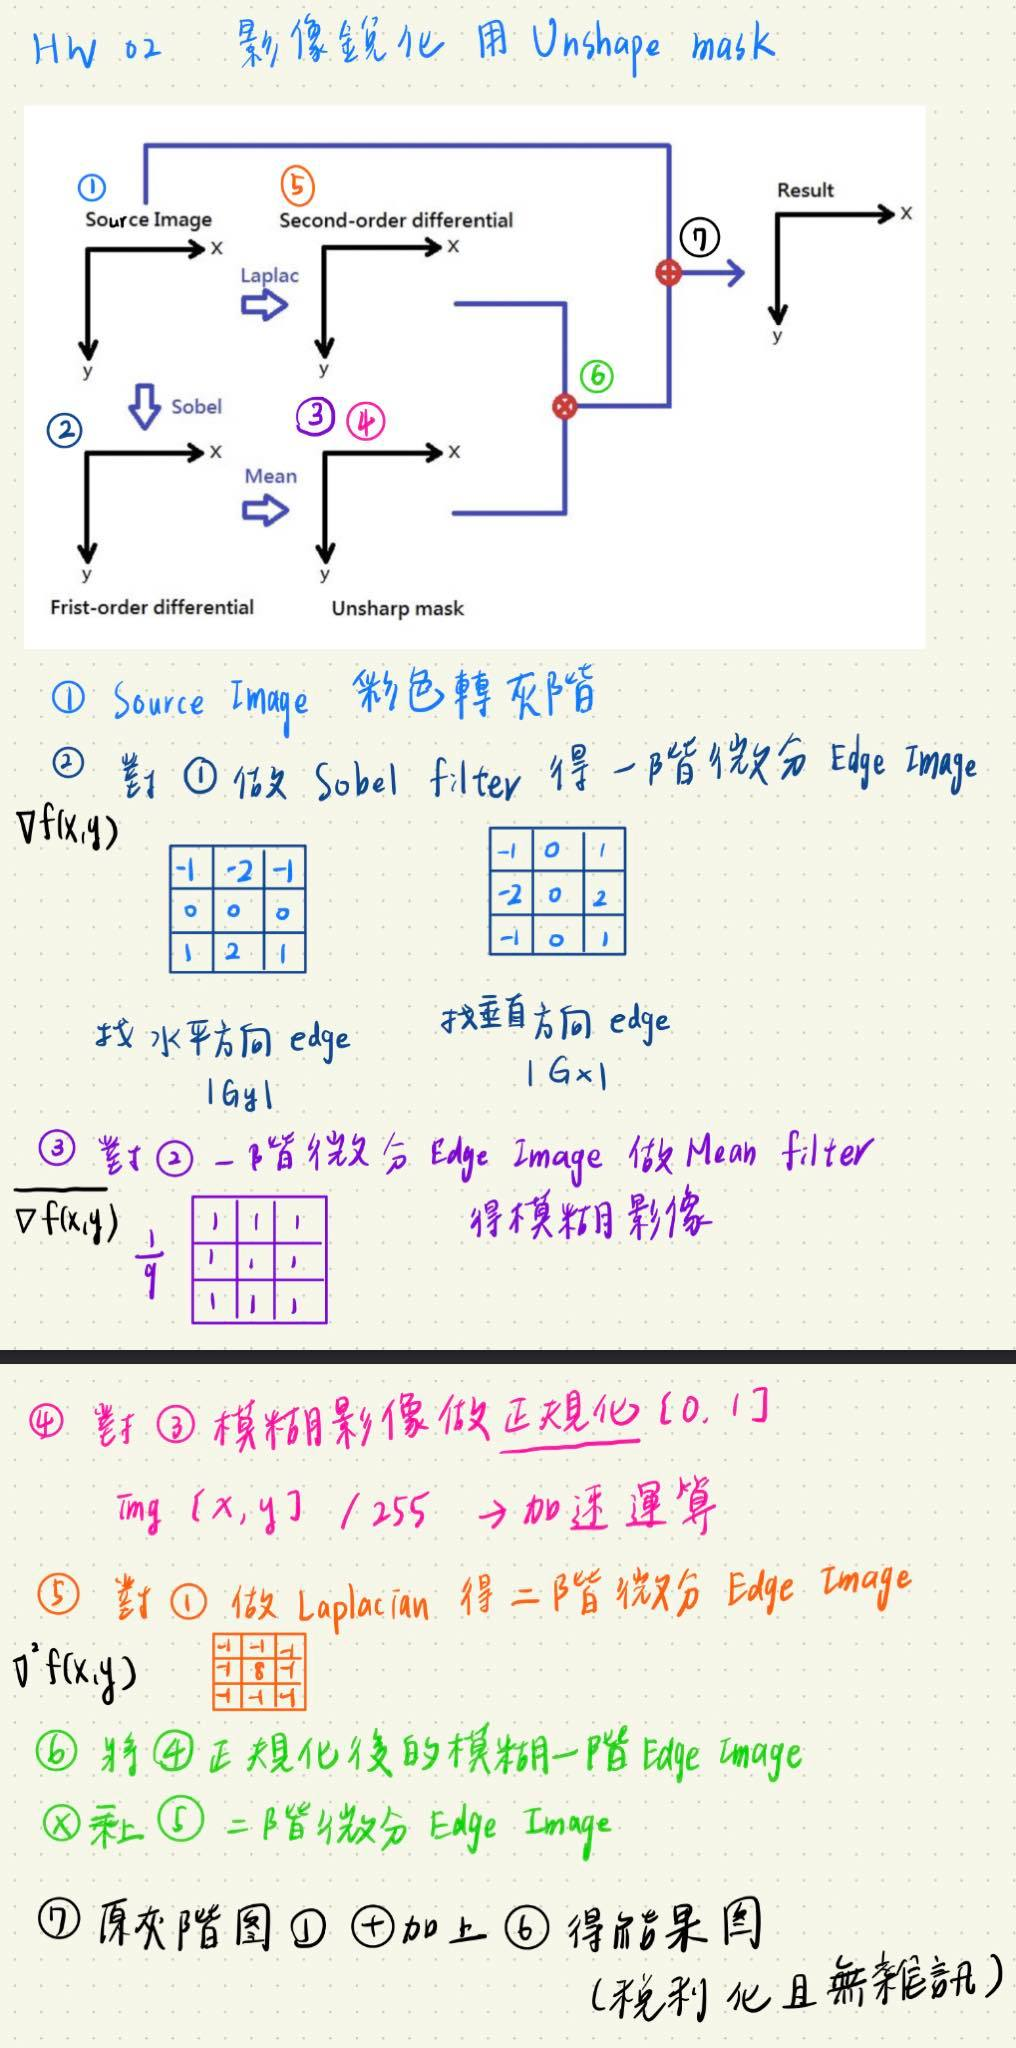 HW 02 影像銳化 用 Unshape mask
① ⑤
Source Image Second-order differential Result
x x x
Laplac ⑦
y y y
⑥
② Sobel ③ ④
x x
Mean
y y
Frist-order differential Unsharp mask
① Source Image 彩色轉灰階
② 對 ① 做 Sobel filter 得一階微分 Edge Image
∇f(x,y)
-1 -2 -1 -1 0 1
0 0 0 -2 0 2
1 2 1 -1 0 1
找水平方向 edge 找垂直方向 edge
|Gy| |Gx|
③ 對 ② 一階微分 Edge Image 做 Mean filter
∇f(x,y) 得模糊影像
1/9
1 1 1
1 1 1
1 1 1
④ 對 ③ 模糊影像做正規化 [0, 1]
Img [x, y] / 255 → 加速運算
⑤ 對 ① 做 Laplacian 得二階微分 Edge Image
∇²f(x,y)
-1 -1 -1
-1 8 -1
-1 -1 -1
⑥ 將 ④ 正規化後的模糊一階 Edge Image
ⓧ 乘上 ⑤ 二階微分 Edge Image
⑦ 原灰階圖 ① ⊕ 加上 ⑥ 得結果圖
(稅利化且無雜訊)